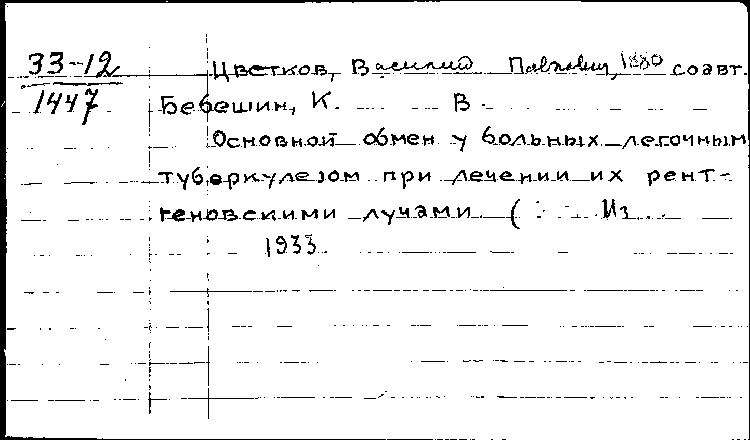 33-12
1447
Цветков, Василий Павлович, 1880 соавт.
Бебешин, К. В.
Основной обмен у больных легочным
туберкулезом при лечении их рент-
геновскими лучами ( Из
1933.